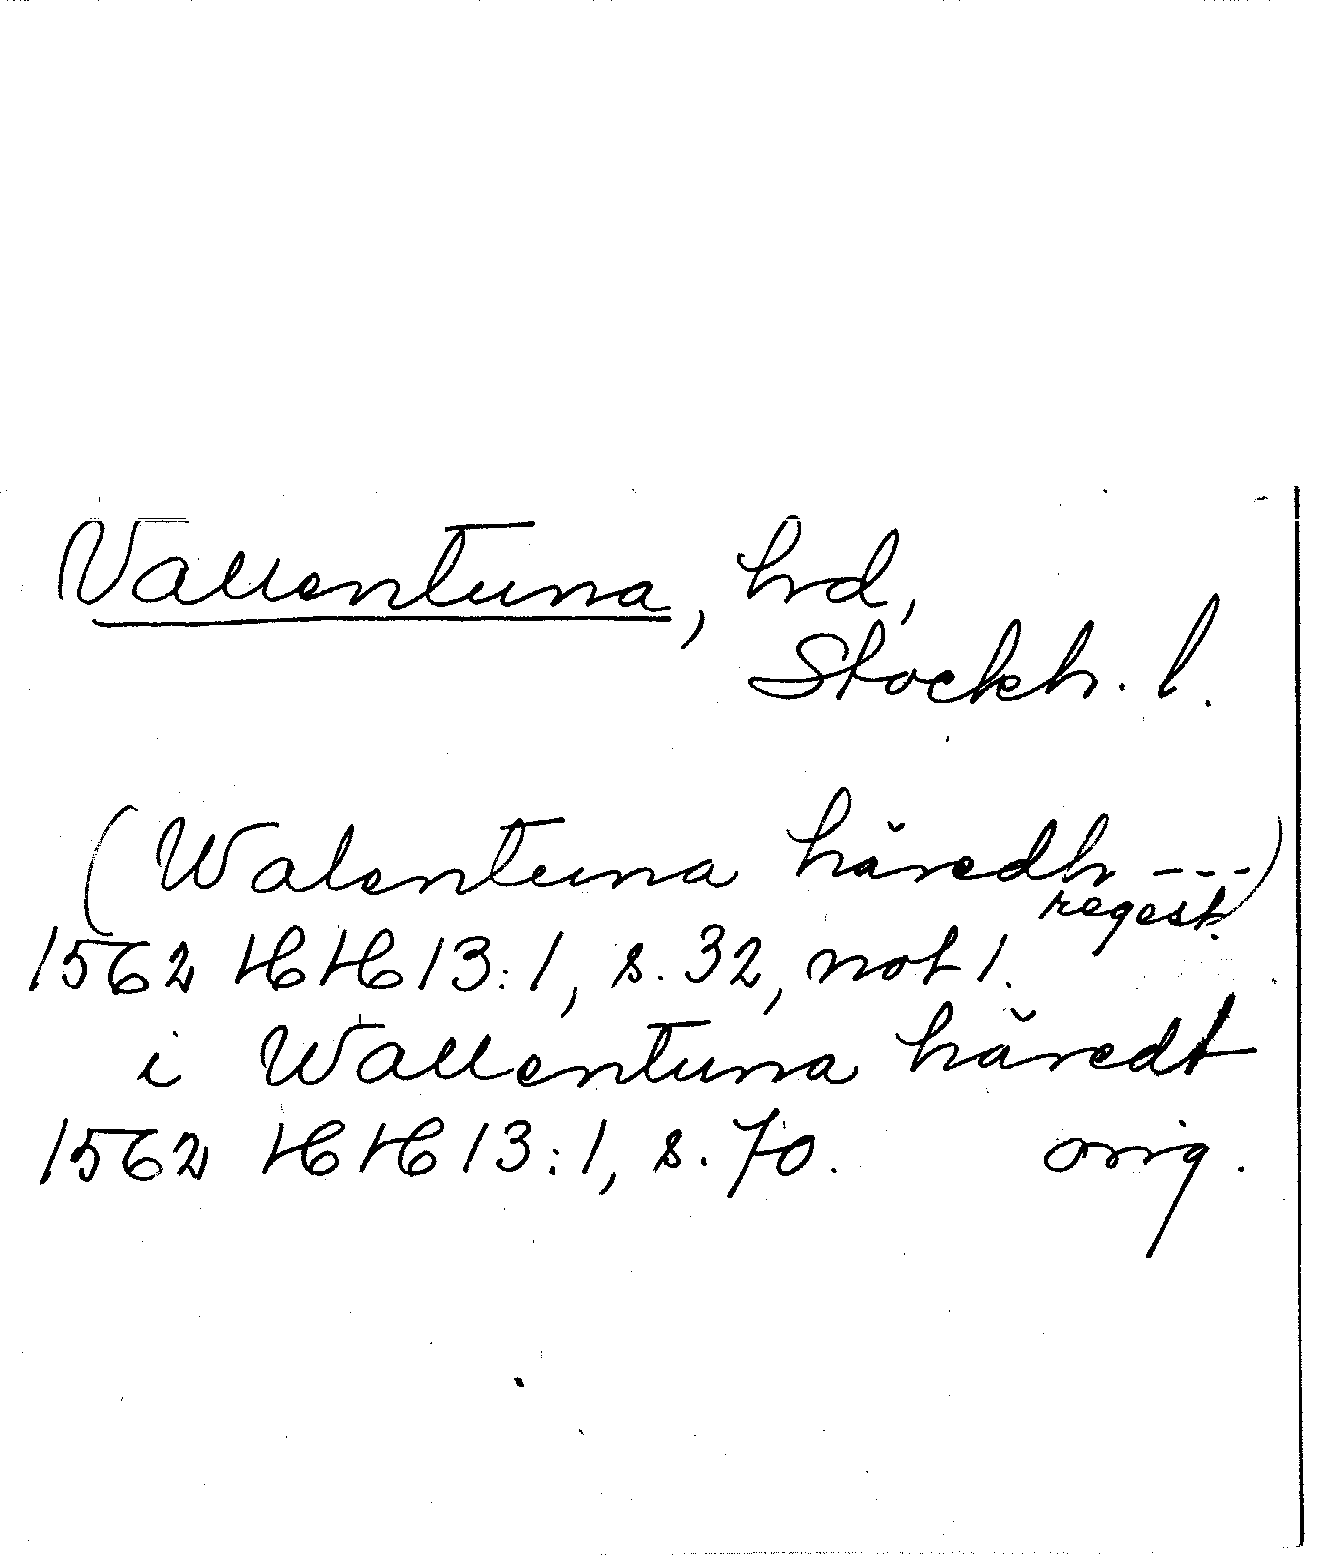 Vallentuna, hrd,
Stockh. l.
(Walentuna häredh ---)
regest.
1562 HH 13:1, s. 32, not 1.
i Wallentuna häredt
1562 HH 13:1, s. 70. orig.